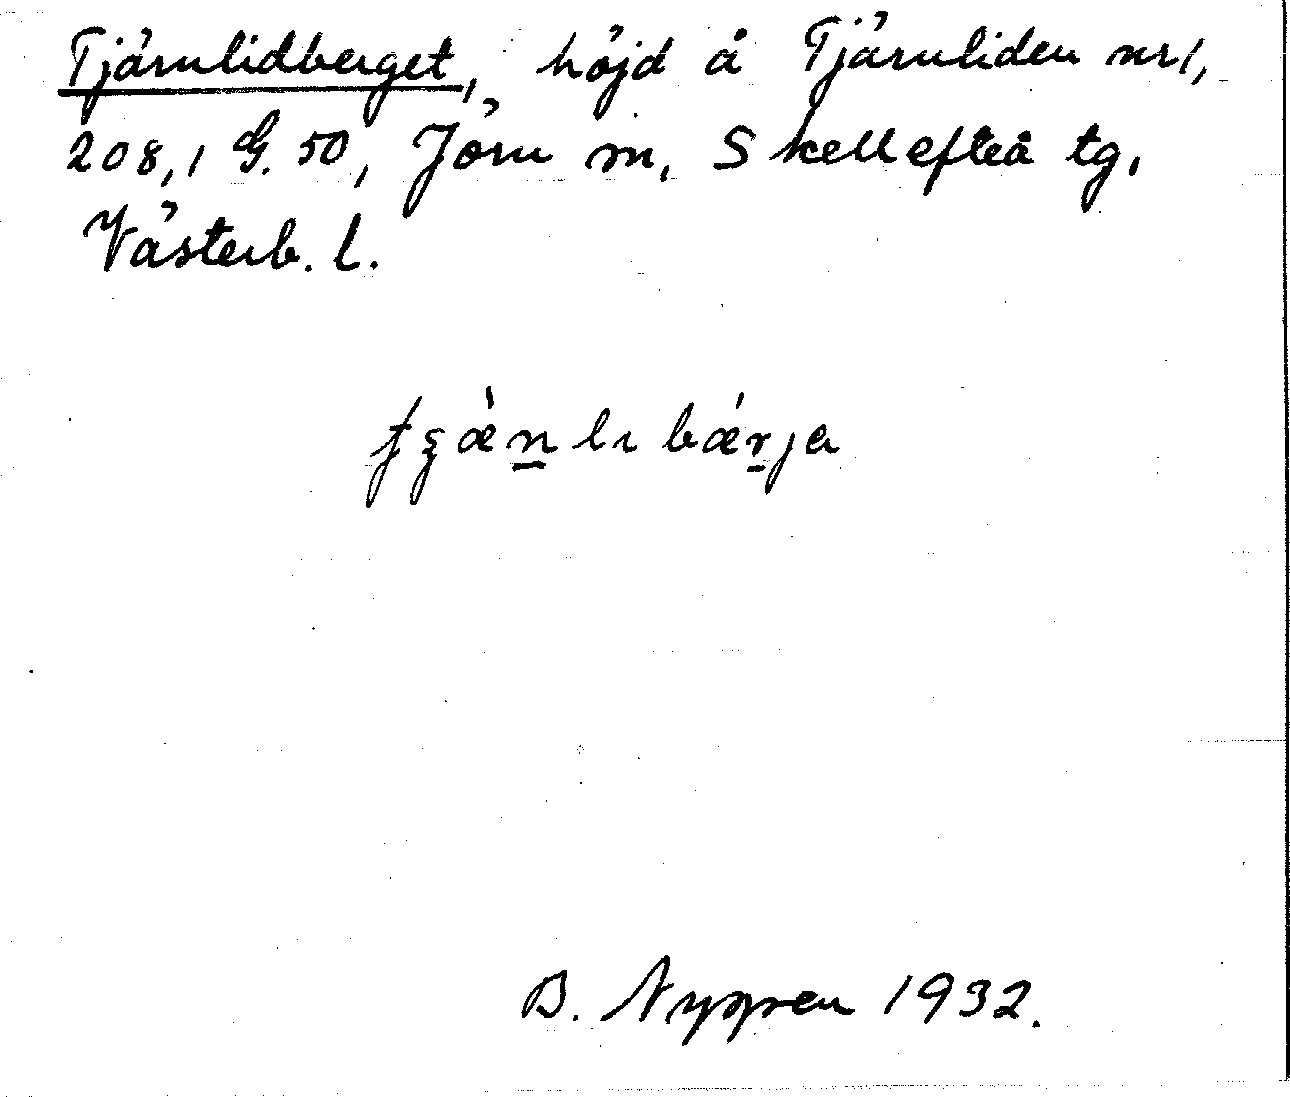 Tjärnlidberget, höjd å Tjärnliden nr 1,
208,1 G. 50, Jörn sn, Skellefteå tg,
Västerb. l.
B. 1932.